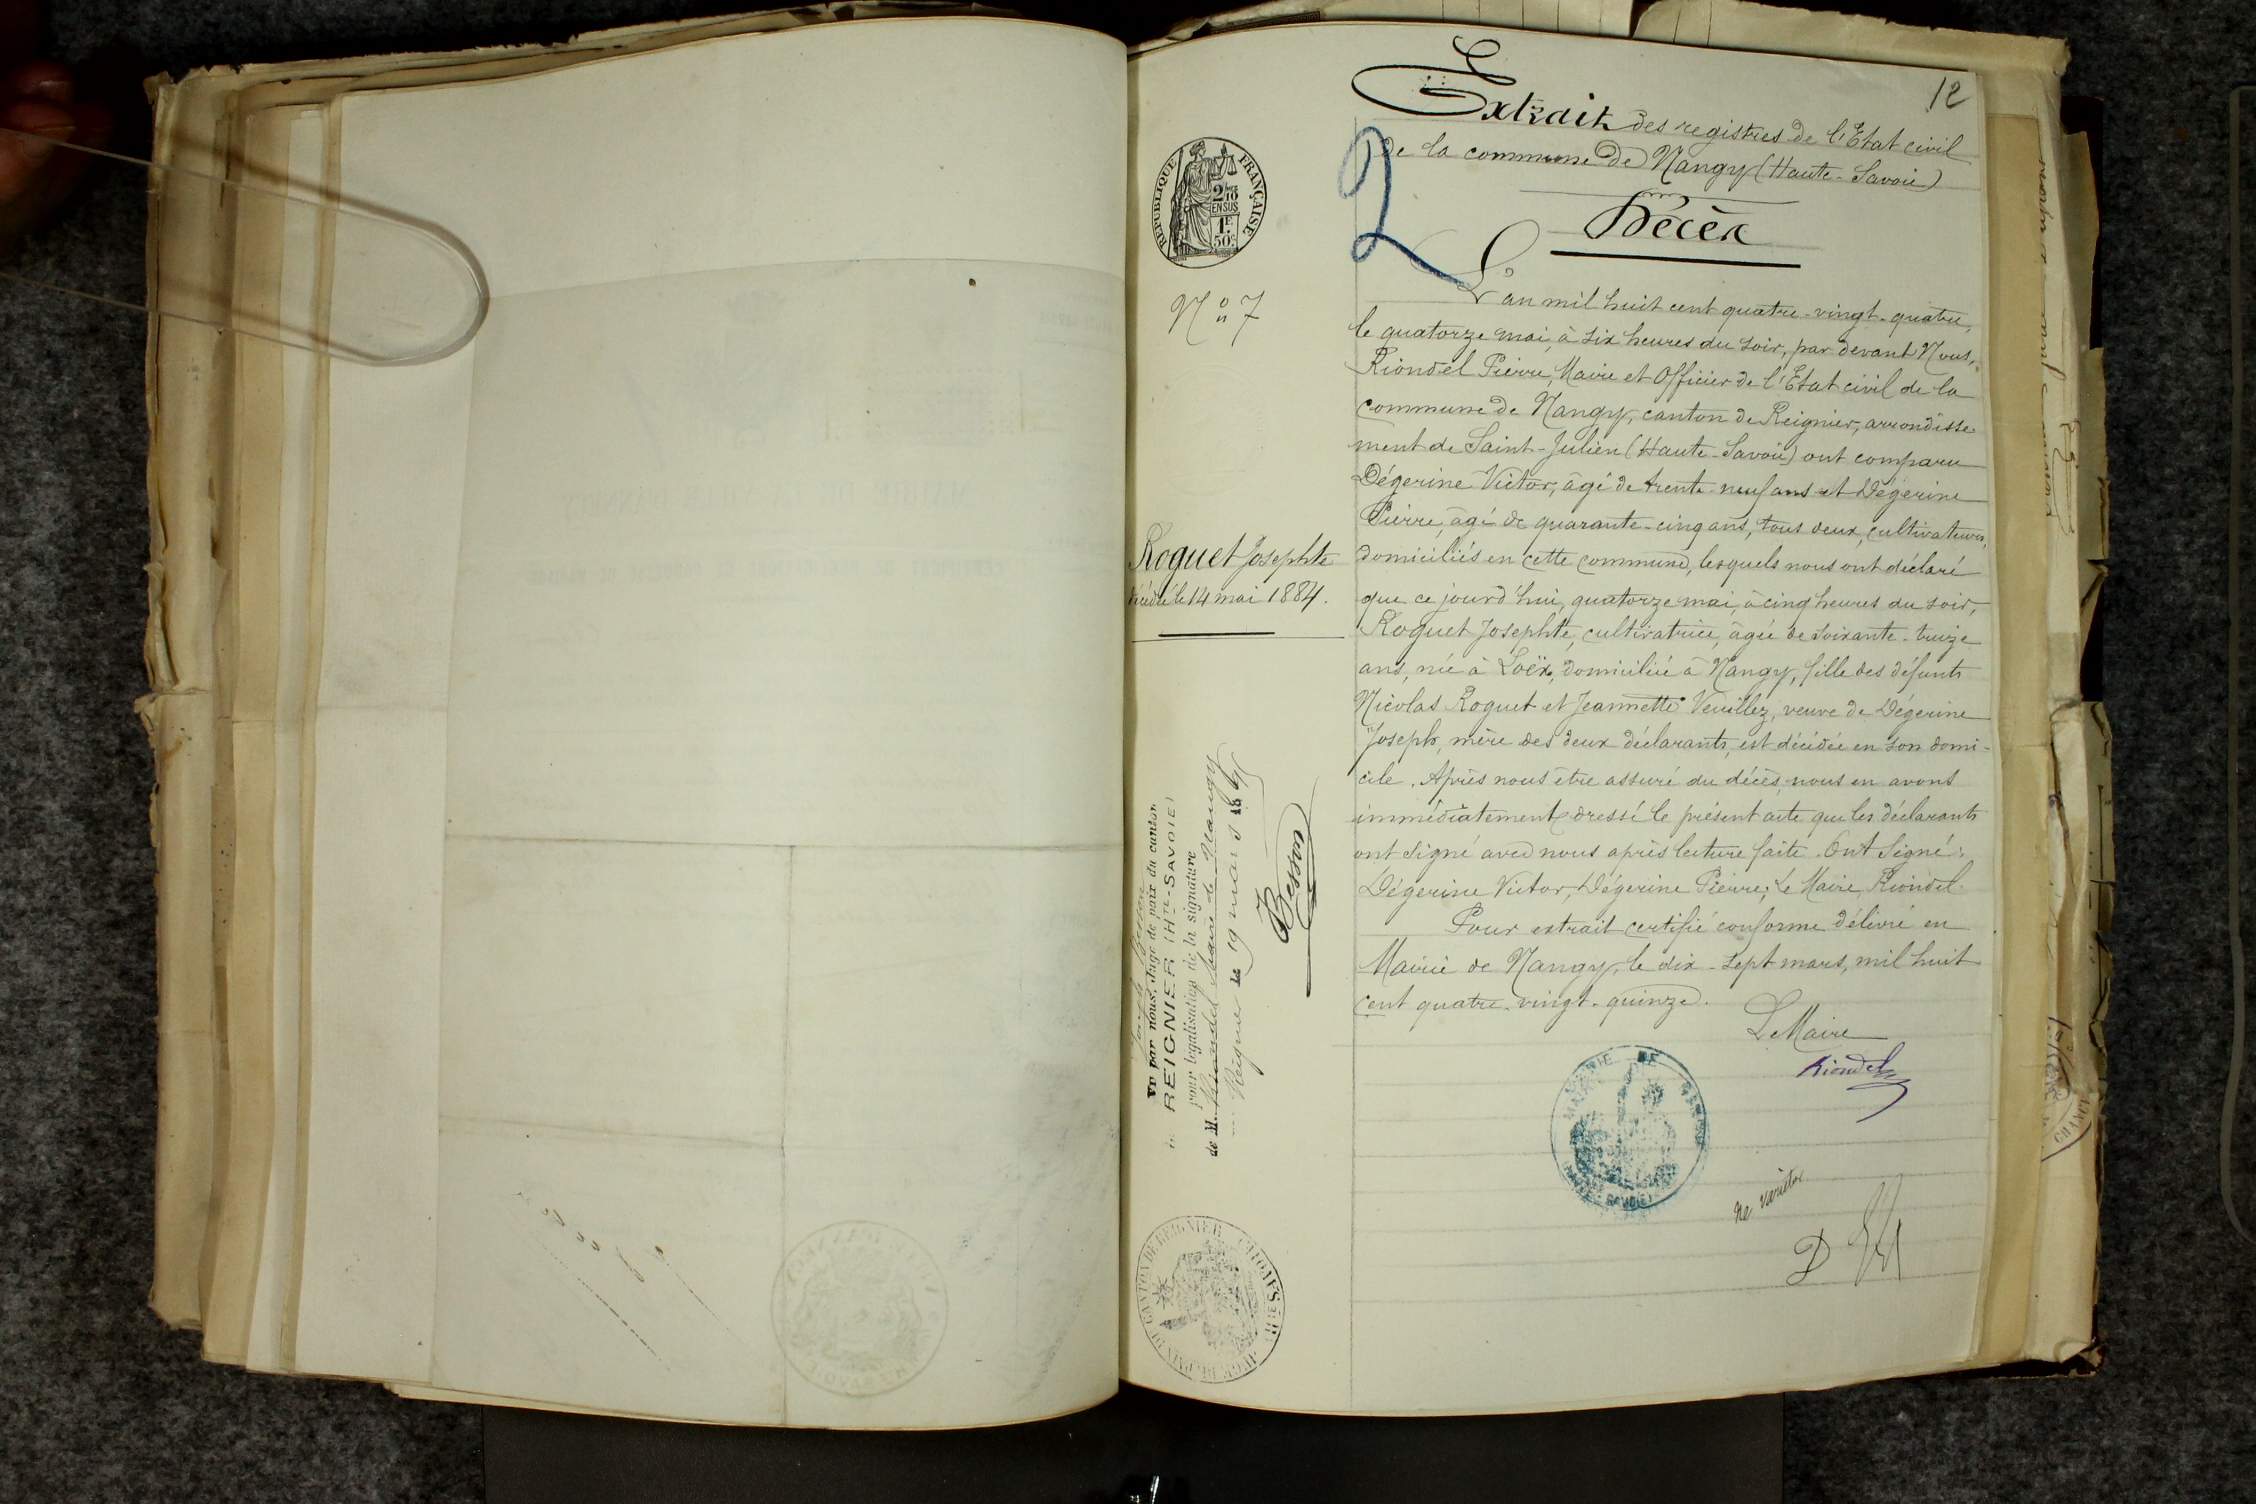 12
Extrait des registres de l'Etat civil
de la commune de Nangy (Haute-Savoie)
2
Décès
RÉPUBLIQUE FRANÇAISE
2/10
EN SUS
1F
50c
No 7
L'an mil huit cent quatre-vingt-quatre,
le quatorze mai, à six heures du soir, par devant Nous,
Riondel Pierre, Maire et Officier de l'Etat civil de la
commune de Nangy, canton de Reignier, arrondisse
ment de Saint-Julien (Haute-Savoie) ont comparu
Dégerine Victor, âgé de trente-neuf ans et Dégerine
Pierre, âgé de quarante-cinq ans, tous deux, cultivateurs,
domiciliés en cette commune, lesquels nous ont déclaré
que ce jourd'hui, quatorze mai, à cinq heures du soir,
Roquet Josephte, cultivatrice, âgée de soixante-treize
ans, née à Loëx, domiciliée à Nangy, fille des défunts
Nicolas Roquet et Jeannette Veuillez, veuve de Dégerine
Joseph, mère des deux déclarants, est décédée en son domi-
cile. Après nous être assuré du décès, nous en avons
immédiatement dressé le présent acte que les déclarants
ont signé avec nous après lecture faite. Ont signé:
Dégerine Victor, Dégerine Pierre; Le Maire, Riondel.
Pour extrait certifié conforme délivré en
Mairie de Nangy, le dix-sept mars, mil huit
cent quatre-vingt-quinze.
Le Maire
Riondel
MAIRIE DE
SAVOIE
Ne varietur
Roquet Josephte
décédée le 14 mai 1884.
Vu par nous, Juge de paix du canton
REIGNIER (HTE-SAVOIE)
pour légalisation de la signature
de M. Riondel Maire de Nangy
Reignier le 19 mars 1895
Besson
CANTON DE REIGNIER